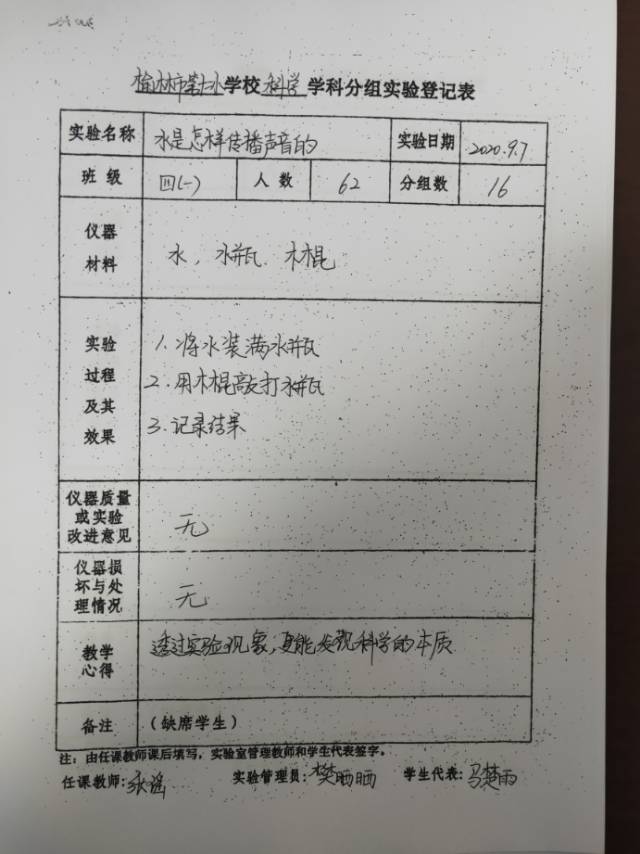 榆林市第十小学校科学学科分组实验登记表
实验名称 水是怎样传播声音的 实验日期 2020.9.7
班级 四(一) 人数 62 分组数 16
仪器
材料
水，水瓶 木棍
实验
过程
及其
效果
1.将水装满水瓶
2.用木棍敲打水瓶
3.记录结果
仪器质量
或实验
改进意见
无
仪器损
坏与处
理情况
无
教学
心得
透过实验现象，更能发现科学的本质.
备注 (缺席学生)
注：由任课教师课后填写，实验室管理教师和学生代表签字。
任课教师: 实验管理员:樊晒晒 学生代表:马楚雨